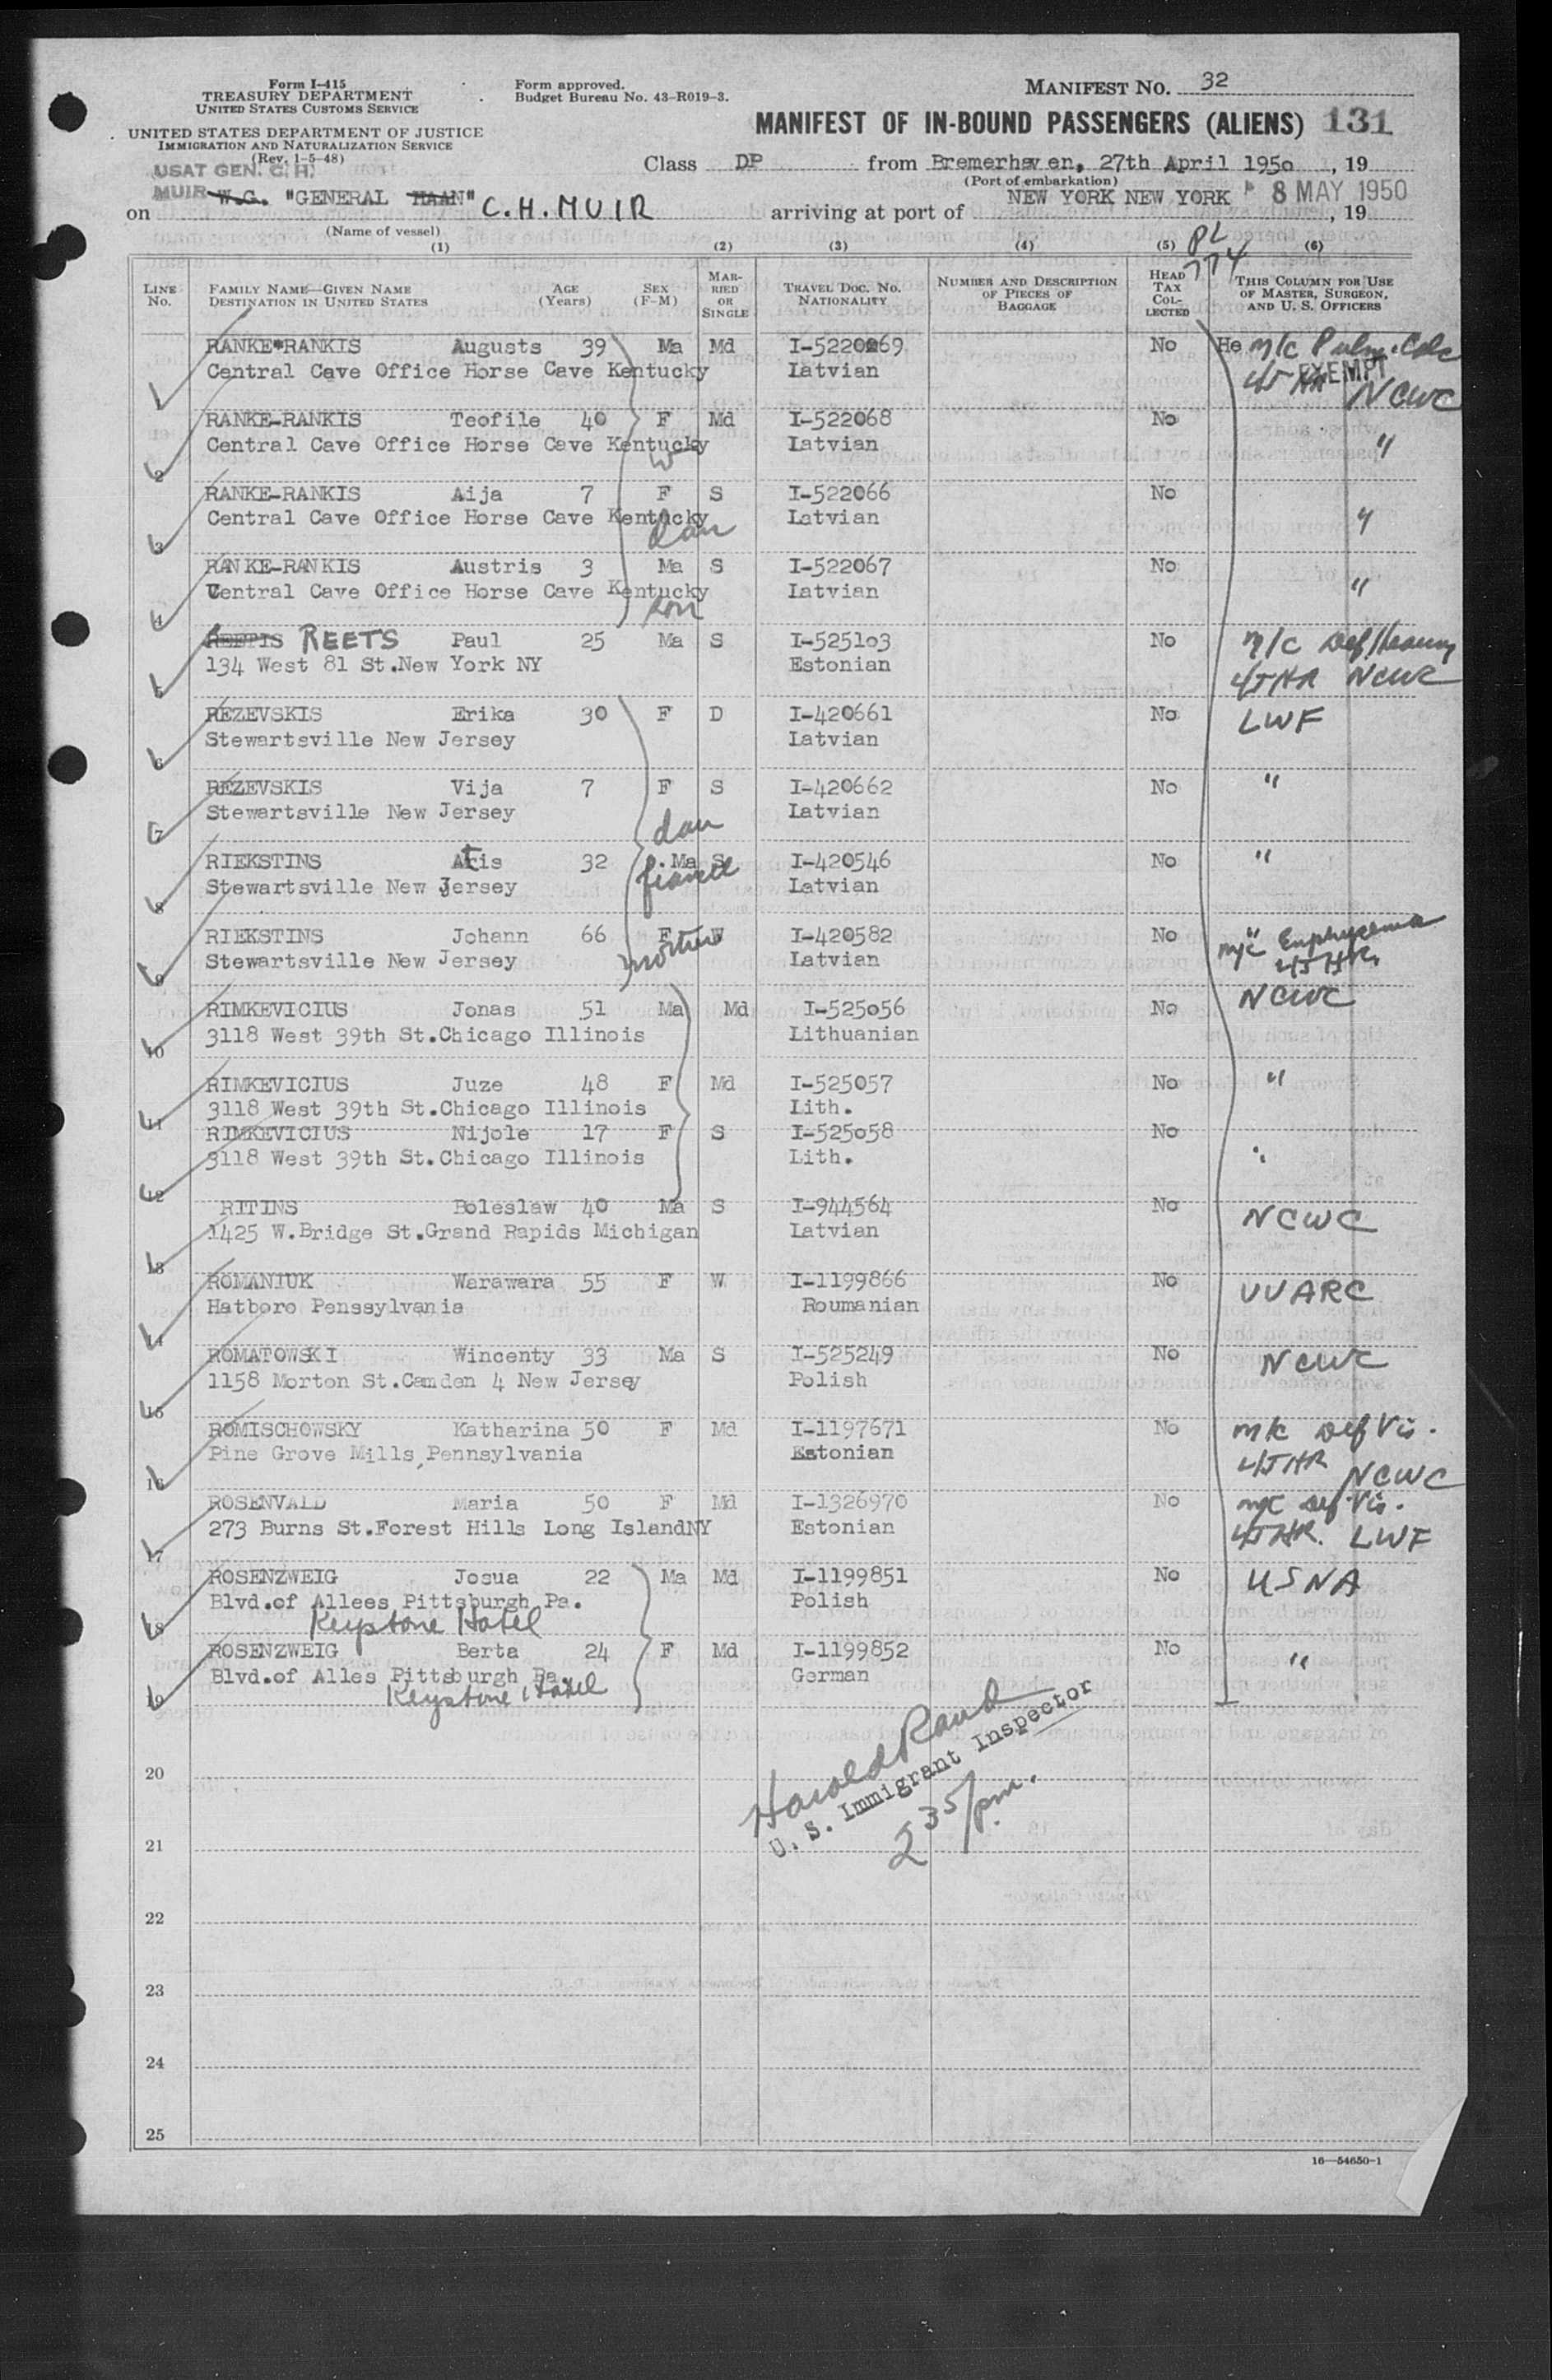 Form I-415
TREASURY DEPARTMENT
UNITED STATES CUSTOMS SERVICE
UNITED STATES DEPARTMENT OF JUSTICE
IMMIGRATION AND NATURALIZATION SERVICE
(Rev. 1-5-48)
Form approved.
Budget Bureau No. 43-R019-3.
MANIFEST NO. 32
MANIFEST OF IN-BOUND PASSENGERS (ALIENS) 131
Class DP from Bremerhaven, 27th April 1950, 19
(Port of embarkation)
USAT GEN. C. H.
MUIR W.G. "GENERAL HAAN" C.H. MUIR
on
(Name of vessel)
arriving at port of NEW YORK NEW YORK 8 MAY 1950, 19
(1) (2) (3) (4) (5) (6)
PL
774
LINE No. FAMILY NAME—GIVEN NAME DESTINATION IN UNITED STATES AGE (Years) SEX (F-M) MARRIED OR SINGLE TRAVEL DOC. NO. NATIONALITY NUMBER AND DESCRIPTION OF PIECES OF BAGGAGE HEAD TAX COLLECTED THIS COLUMN FOR USE OF MASTER, SURGEON, AND U. S. OFFICERS
RANKE-RANKIS Augusts 39 Ma Md I-522069 No He m/c Pulm. Calc
Central Cave Office Horse Cave Kentucky Latvian 45 HR EXEMPT NCWC
2 RANKE-RANKIS Teofile 40 F Md I-522068 No
Central Cave Office Horse Cave Kentucky W Latvian "
3 RANKE-RANKIS Aija 7 F S I-522066 No
Central Cave Office Horse Cave Kentucky dau Latvian "
4 RANKE-RANKIS Austris 3 Ma S I-522067 No
Central Cave Office Horse Cave Kentucky son Latvian "
5 REETS Paul 25 Ma S I-525103 No m/c Def Hearing
134 West 81 St.New York NY Estonian 45 HR NCWC
6 REZEVSKIS Erika 30 F D I-420661 No LWF
Stewartsville New Jersey Latvian
7 REZEVSKIS Vija 7 F S I-420662 No "
Stewartsville New Jersey dau Latvian
8 RIEKSTINS Atis 32 Ma S I-420546 No "
Stewartsville New Jersey fiance Latvian
9 RIEKSTINS Johann 66 F W I-420582 No " m/c Emphysema
Stewartsville New Jersey mother Latvian 45 HR.
10 RIMKEVICIUS Jonas 51 Ma Md I-525056 No NCWC
3118 West 39th St.Chicago Illinois Lithuanian
11 RIMKEVICIUS Juze 48 F Md I-525057 No "
3118 West 39th St.Chicago Illinois Lith.
12 RIMKEVICIUS Nijole 17 F S I-525058 No "
3118 West 39th St.Chicago Illinois Lith.
13 RITINS Boleslaw 40 Ma S I-944564 No NCWC
1425 W.Bridge St.Grand Rapids Michigan Latvian
14 ROMANIUK Warawara 55 F W I-1199866 No UUARC
Hatboro Penssylvania Roumanian
15 ROMATOWSKI Wincenty 33 Ma S I-525249 No NCWC
1158 Morton St.Camden 4 New Jersey Polish
16 ROMISCHOWSKY Katharina 50 F Md I-1197671 No m/c Def Vis.
Pine Grove Mills, Pennsylvania Estonian 45 HR NCWC
17 ROSENVALD Maria 50 F Md I-1326970 No m/c Def. Vis.
273 Burns St.Forest Hills Long IslandNY Estonian 45 HR. LWF
18 ROSENZWEIG Josua 22 Ma Md I-1199851 No USNA
Blvd.of Allees Pittsburgh Pa. Polish
Keystone Hotel
19 ROSENZWEIG Berta 24 F Md I-1199852 No "
Blvd.of Alles Pittsburgh Pa. German
Keystone Hotel
Harold Rand
U. S. Immigrant Inspector
2 35/pm.
20
21
22
23
24
25
16—54650-1